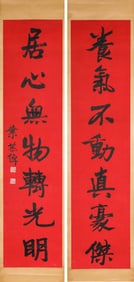 養氣不動真豪傑
居心無物轉光明
葉恭綽